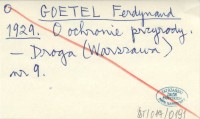 GOETEL Ferdynand
1929. O ochronie przyrody.
— Droga (Warszawa)
nr 9.